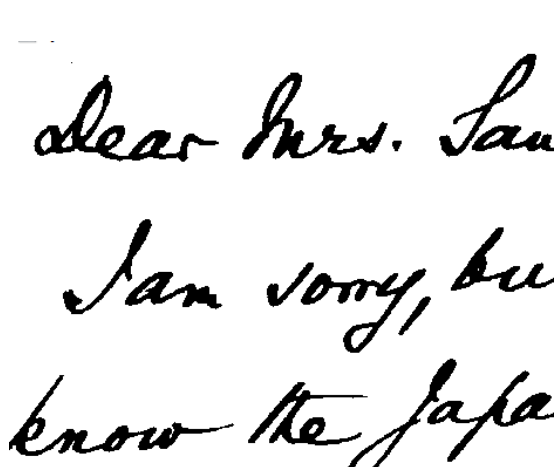 Dear Mrs. Sau
I am sorry, bu
know the Japa